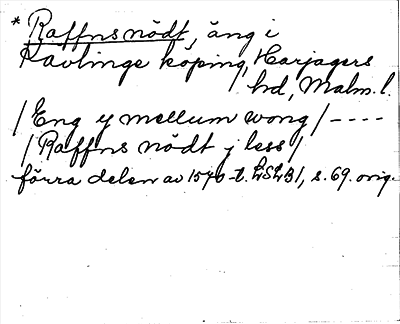 * Raffns nödt, äng i
Kävlinge köping, Harjagers
hd, Malm. l.
/ Eng y mellum wong / ----
/ Raffns nödt j less /
förra delen av 1570-t. LSLB1, s. 69. orig.